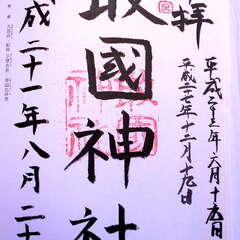 平成二十三年六月十五日
平成二十七年十二月十九日
拝
國神社
成二十一年八月二十